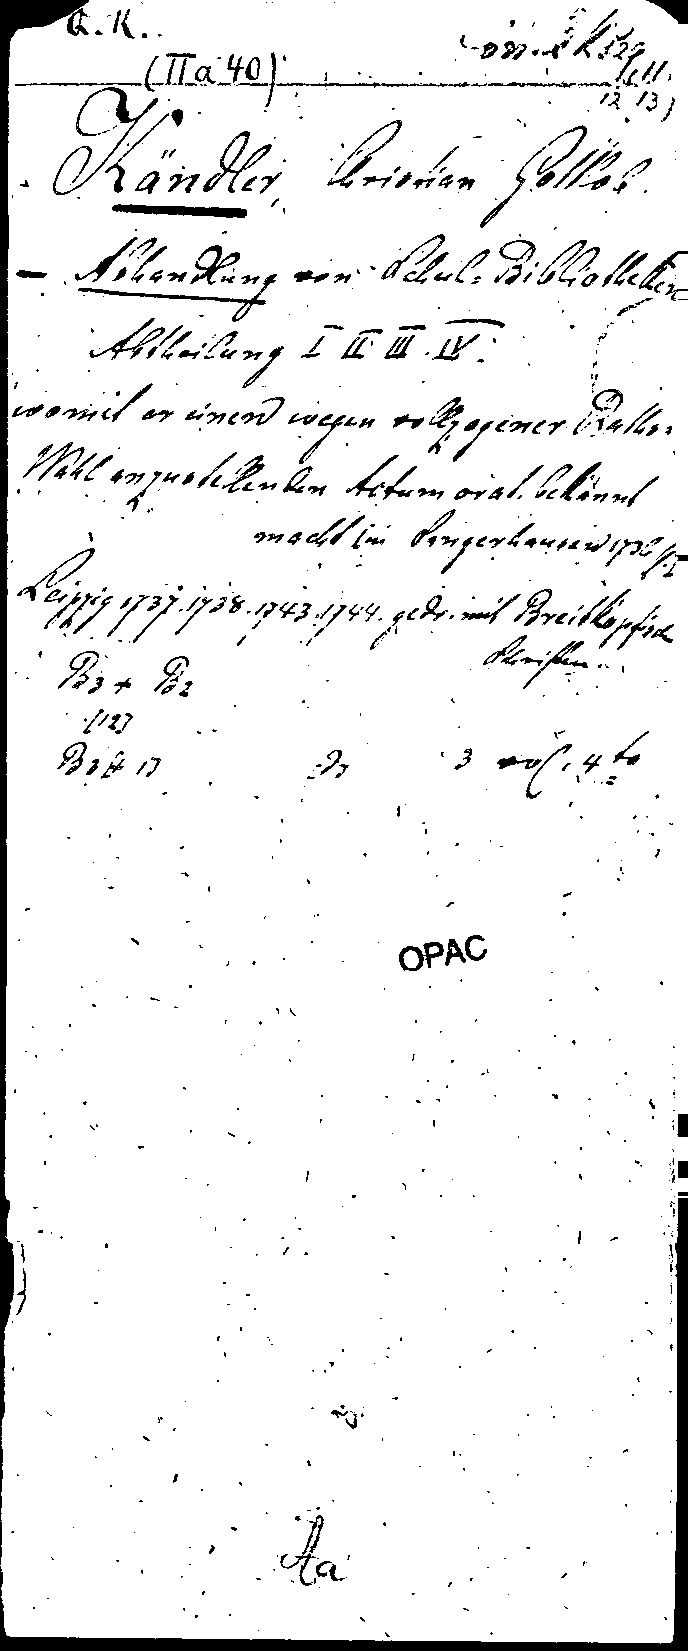 C. K.
(II a 40)
12 13)
Kändler, Christian Gottlob
— Abhandlung von Schul-Bibliotheken
Abtheilung I II III IV.
womit er einen wegen vollzogener Raths-
Wahl anzustellenden Actum orat. bekannt
macht in Sangerhausen 1736
Leipzig 1737. 1738. 1743. 1744. gedr. mit Breitkopfisch
Schriften.
B3 + B2
(12)
B3 + 13
3 vol. 4to
OPAC
Aa